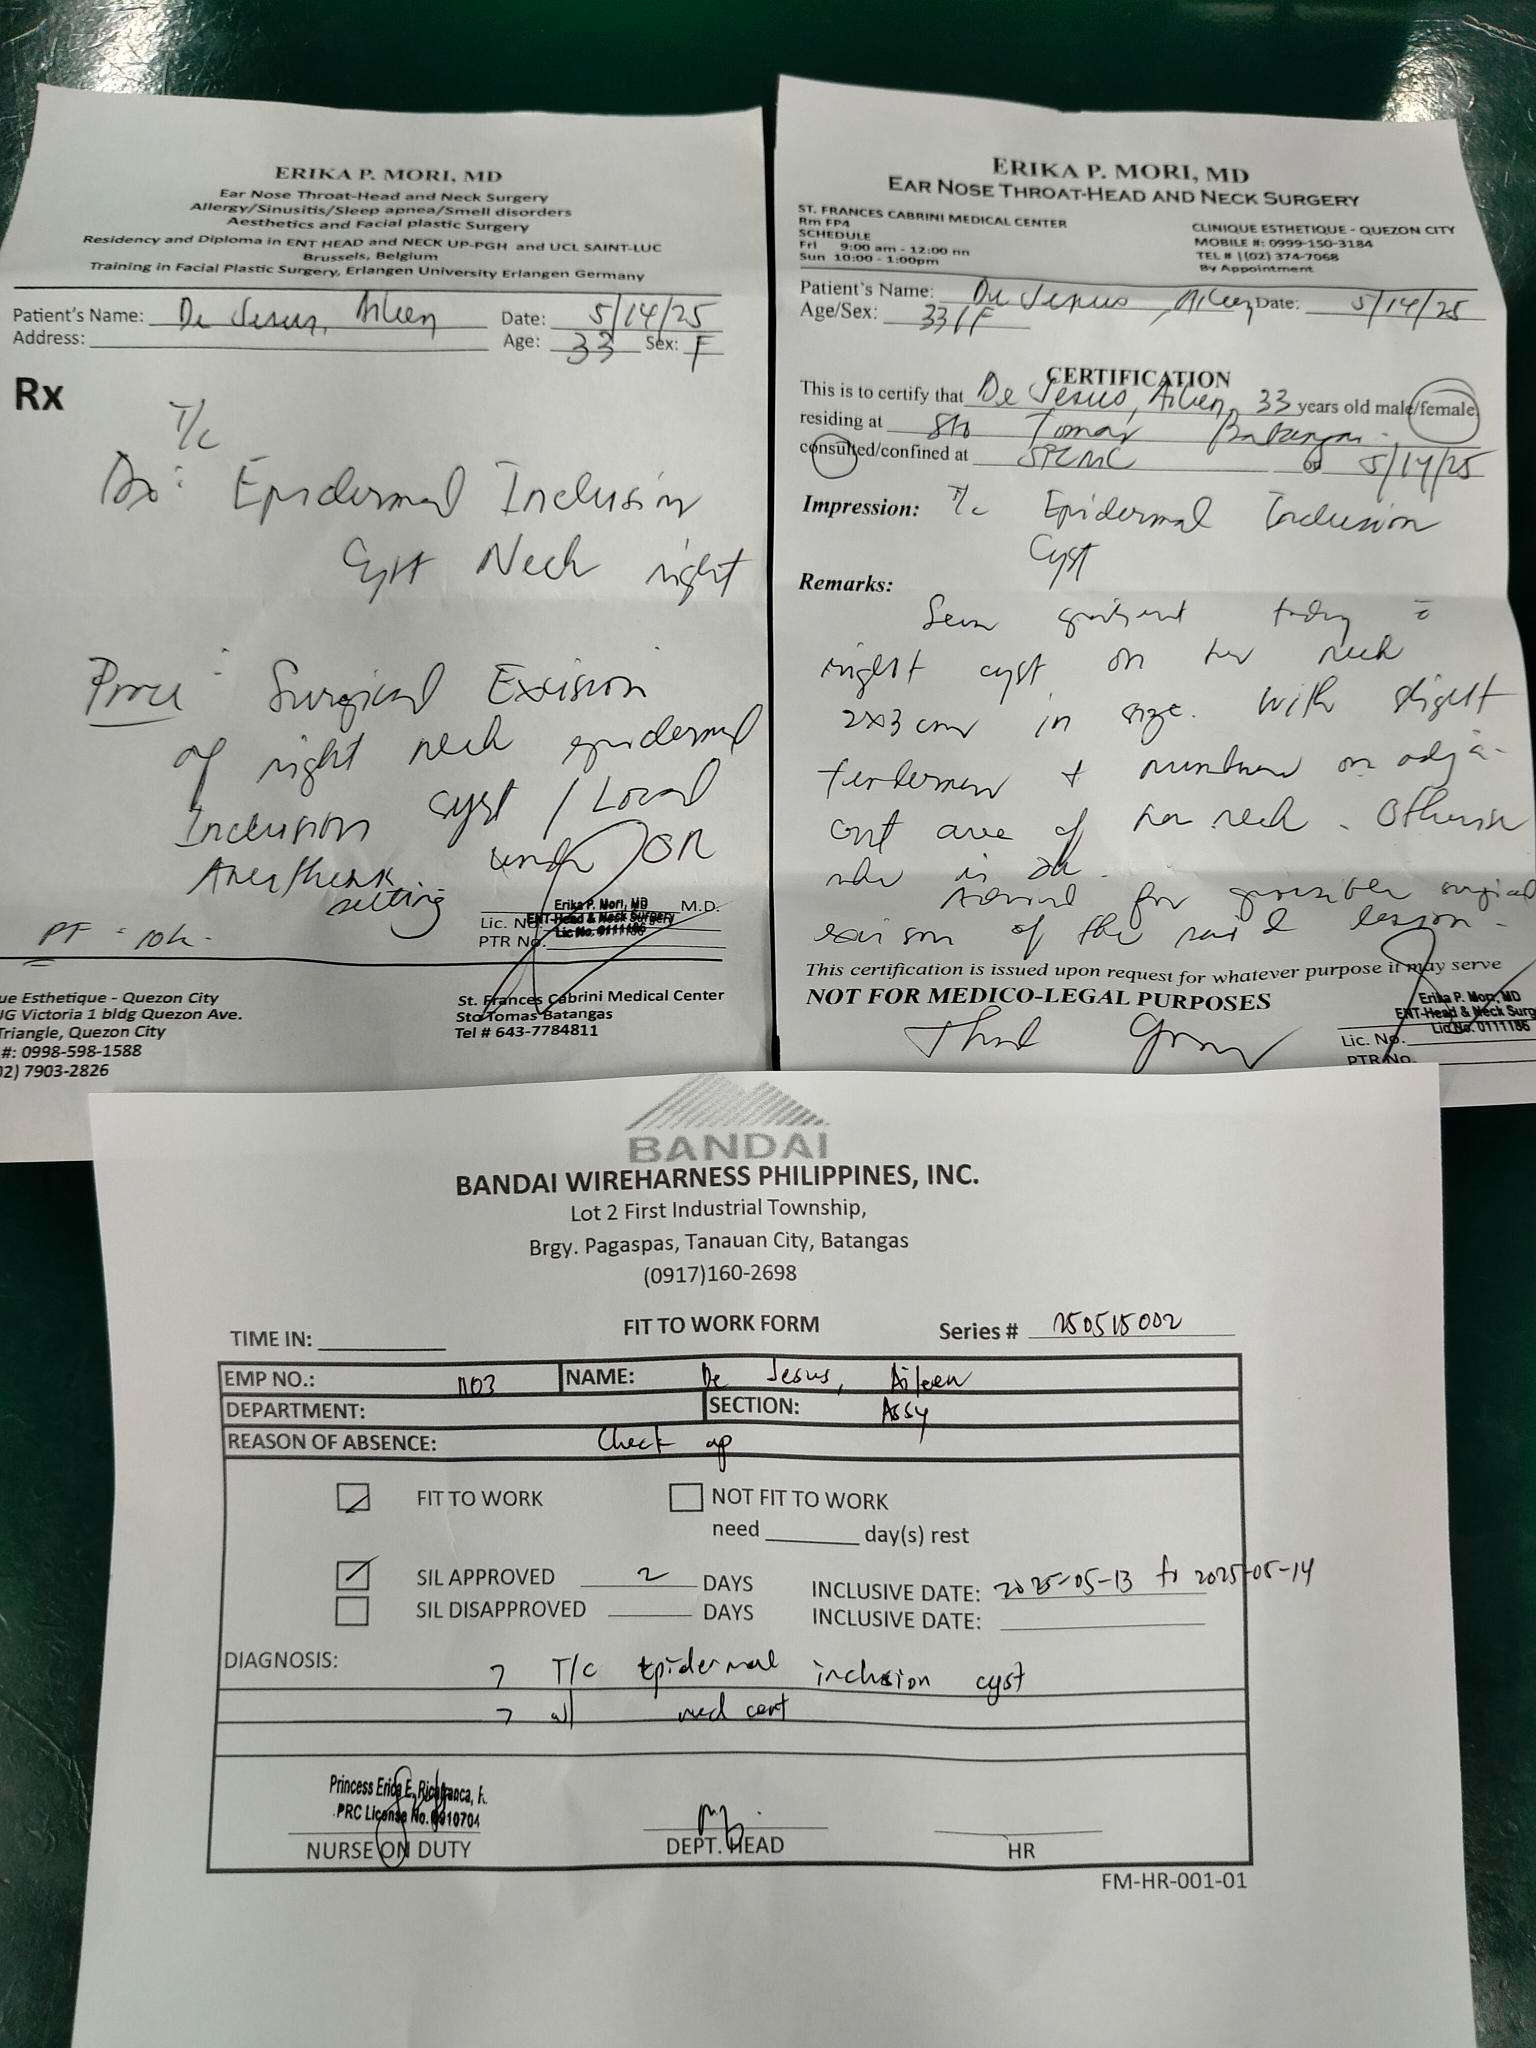 ERIKA P. MORI, MD
Ear Nose Throat-Head and Neck Surgery
Allergy/Sinusitis/Sleep apnea/Smell disorders
Aesthetics and Facial plastic Surgery
Residency and Diploma in ENT HEAD and NECK UP-PGH and UCL SAINT-LUC
Brussels, Belgium
Training in Facial Plastic Surgery, Erlangen University Erlangen Germany
Patient's Name: De Jesus, Aileen Date: 5/14/25
Address: Age: 33 Sex: F
Rx
T/c
Dx: Epidermal Inclusion
Cyst Neck right
Proc: Surgical Excision
of right neck epidermal
Inclusion cyst / Local
Anesthesia under OR
setting
PF = 10k.
Erika P. Mori, MD M.D.
ENT-Head & Neck Surgery
Lic. No. Lic No. 0111186
PTR No.
ue Esthetique - Quezon City
UG Victoria 1 bldg Quezon Ave.
Triangle, Quezon City
#: 0998-598-1588
02) 7903-2826
St. Frances Cabrini Medical Center
Sto Tomas Batangas
Tel # 643-7784811
ERIKA P. MORI, MD
EAR NOSE THROAT-HEAD AND NECK SURGERY
ST. FRANCES CABRINI MEDICAL CENTER
Rm FP4
SCHEDULE
Fri 9:00 am - 12:00 nn
Sun 10:00 - 1:00pm
CLINIQUE ESTHETIQUE - QUEZON CITY
MOBILE #: 0999-150-3184
TEL # (02) 374-7068
By Appointment
Patient's Name: De Jesus, Aileen Date: 5/14/25
Age/Sex: 33/F
CERTIFICATION
This is to certify that De Jesus, Aileen, 33 years old male/female
residing at Sto Tomas Batangas.
consulted/confined at SFCMC on 5/14/25
Impression: T/c Epidermal Inclusion
Cyst
Remarks:
Seen patient today c̄
right cyst on her neck
2x3 cm in size. With slight
tenderness + numbness on adja-
cent area of her neck. Otherwise
she is
Advised for possible surgical
excision of the said lesion.
This certification is issued upon request for whatever purpose it may serve
NOT FOR MEDICO-LEGAL PURPOSES
Thank you
Erika P. Mori, MD
ENT-Head & Neck Surg
Lic No. 0111186
Lic. No.
PTR No.
BANDAI
BANDAI WIREHARNESS PHILIPPINES, INC.
Lot 2 First Industrial Township,
Brgy. Pagaspas, Tanauan City, Batangas
(0917)160-2698
TIME IN: FIT TO WORK FORM Series # 250515002
EMP NO.: 1103 NAME: De Jesus, Aileen
DEPARTMENT: SECTION: Assy
REASON OF ABSENCE: Check up
FIT TO WORK NOT FIT TO WORK
need day(s) rest
SIL APPROVED 2 DAYS INCLUSIVE DATE: 2025-05-13 to 2025-05-14
SIL DISAPPROVED DAYS INCLUSIVE DATE:
DIAGNOSIS: T/C Epidermal inclusion cyst
w/ med cert
Princess Erica E.
PRC License No. 0910704
NURSE ON DUTY DEPT. HEAD HR
FM-HR-001-01